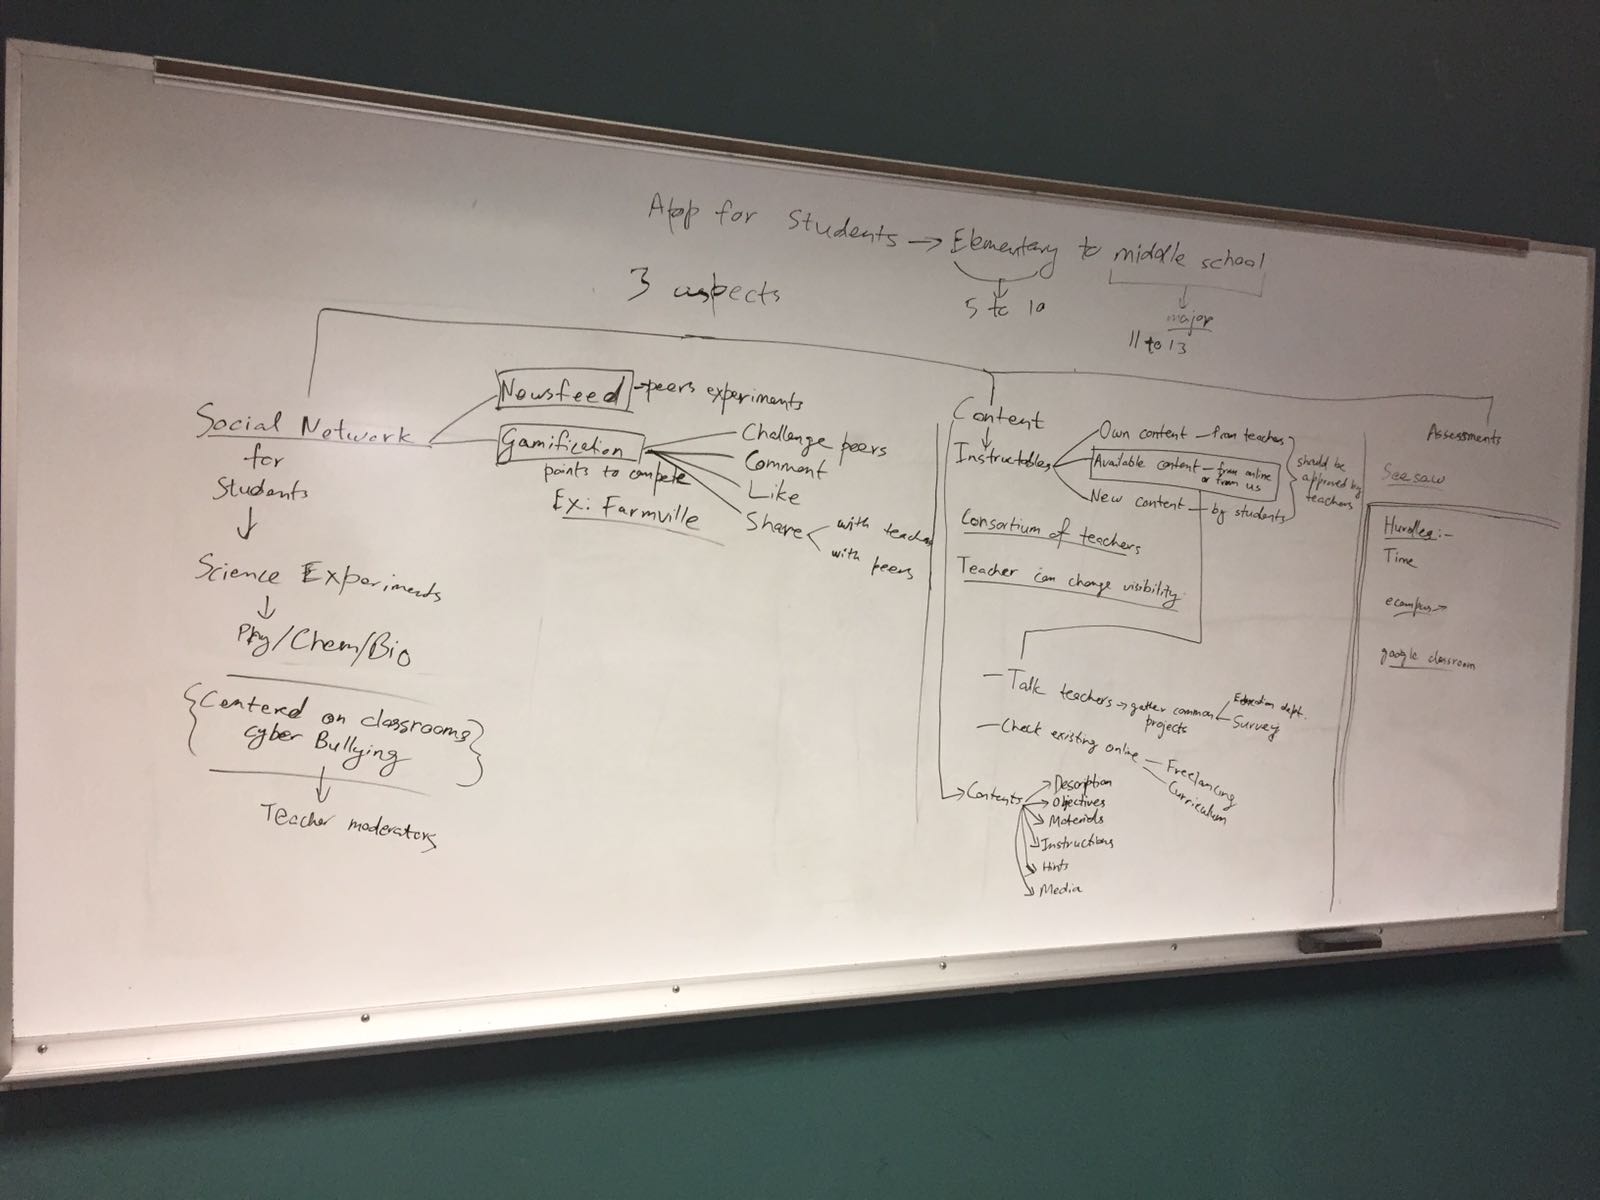 App for Students → Elementary to middle school
5 to 10
major
11 to 13
3 aspects
Social Network
for
Students
↓
Science Experiments
↓
Phy/Chem/Bio
{Centered on classrooms
cyber Bullying}
↓
Teacher moderators
Newsfeed → peers experiments
Gamification
points to compete
Ex: Farmville
Challenge peers
Comment
Like
Share
with teacher
with peers
Content
↓
Instructables
Own content – from teachers
Available content – from online
or from us
New content – by students
should be
approved by
teachers
Consortium of teachers
Teacher can change visibility
– Talk teachers → gather common
projects
Education dept.
Survey
– Check existing online
– Freelancing
Curriculum
→ Contents
Description
Objectives
Materials
Instructions
Hints
Media
Assessments
Seesaw
Hurdles:-
Time
ecampus →
google classroom